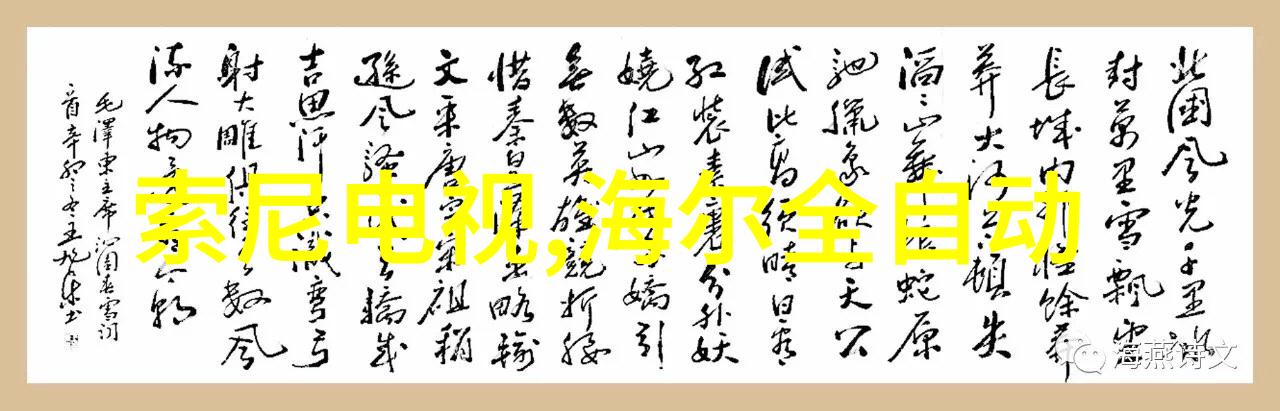 北國风光千里冰
封萬里雪飄望
長城内外惟餘莽
莽大河上下頓失
滔滔山舞蛇原
驰臘象欲与天公
試比高须晴日看
红装素裹分外妖
娆江山如此多嬌引
無數英雄競折腰
惜秦皇漢武略输
文采唐宗宋祖稍
遜风骚天驕成
吉思汗只識弯弓
射大雕俱往矣數风
流人物还看今朝
毛澤東主席沁園春雪词
首辛卯之冬王书
索尼电视,海尔全自动
海燕诗文